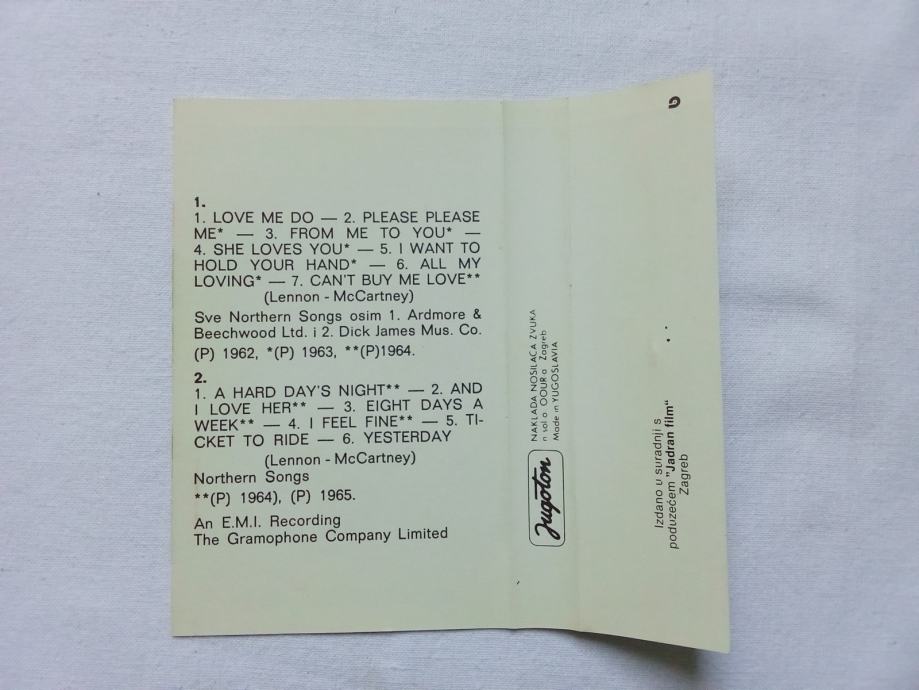 1.
1. LOVE ME DO — 2. PLEASE PLEASE
ME* — 3. FROM ME TO YOU* —
4. SHE LOVES YOU* — 5. I WANT TO
HOLD YOUR HAND* — 6. ALL MY
LOVING* — 7. CAN'T BUY ME LOVE**
(Lennon - McCartney)
Sve Northern Songs osim 1. Ardmore &
Beechwood Ltd. i 2. Dick James Mus. Co.
(P) 1962, *(P) 1963, **(P)1964.
2.
1. A HARD DAY'S NIGHT** — 2. AND
I LOVE HER** — 3. EIGHT DAYS A
WEEK** — 4. I FEEL FINE** — 5. TI-
CKET TO RIDE — 6. YESTERDAY
(Lennon - McCartney)
Northern Songs
**(P) 1964), (P) 1965.
An E.M.I. Recording
The Gramophone Company Limited
Jugoton
NAKLADA NOSILAČA ZVUKA
n sol o OOUR o Zagreb
Made in YUGOSLAVIA
Izdano u suradnji s
poduzećem "Jadran film"
Zagreb